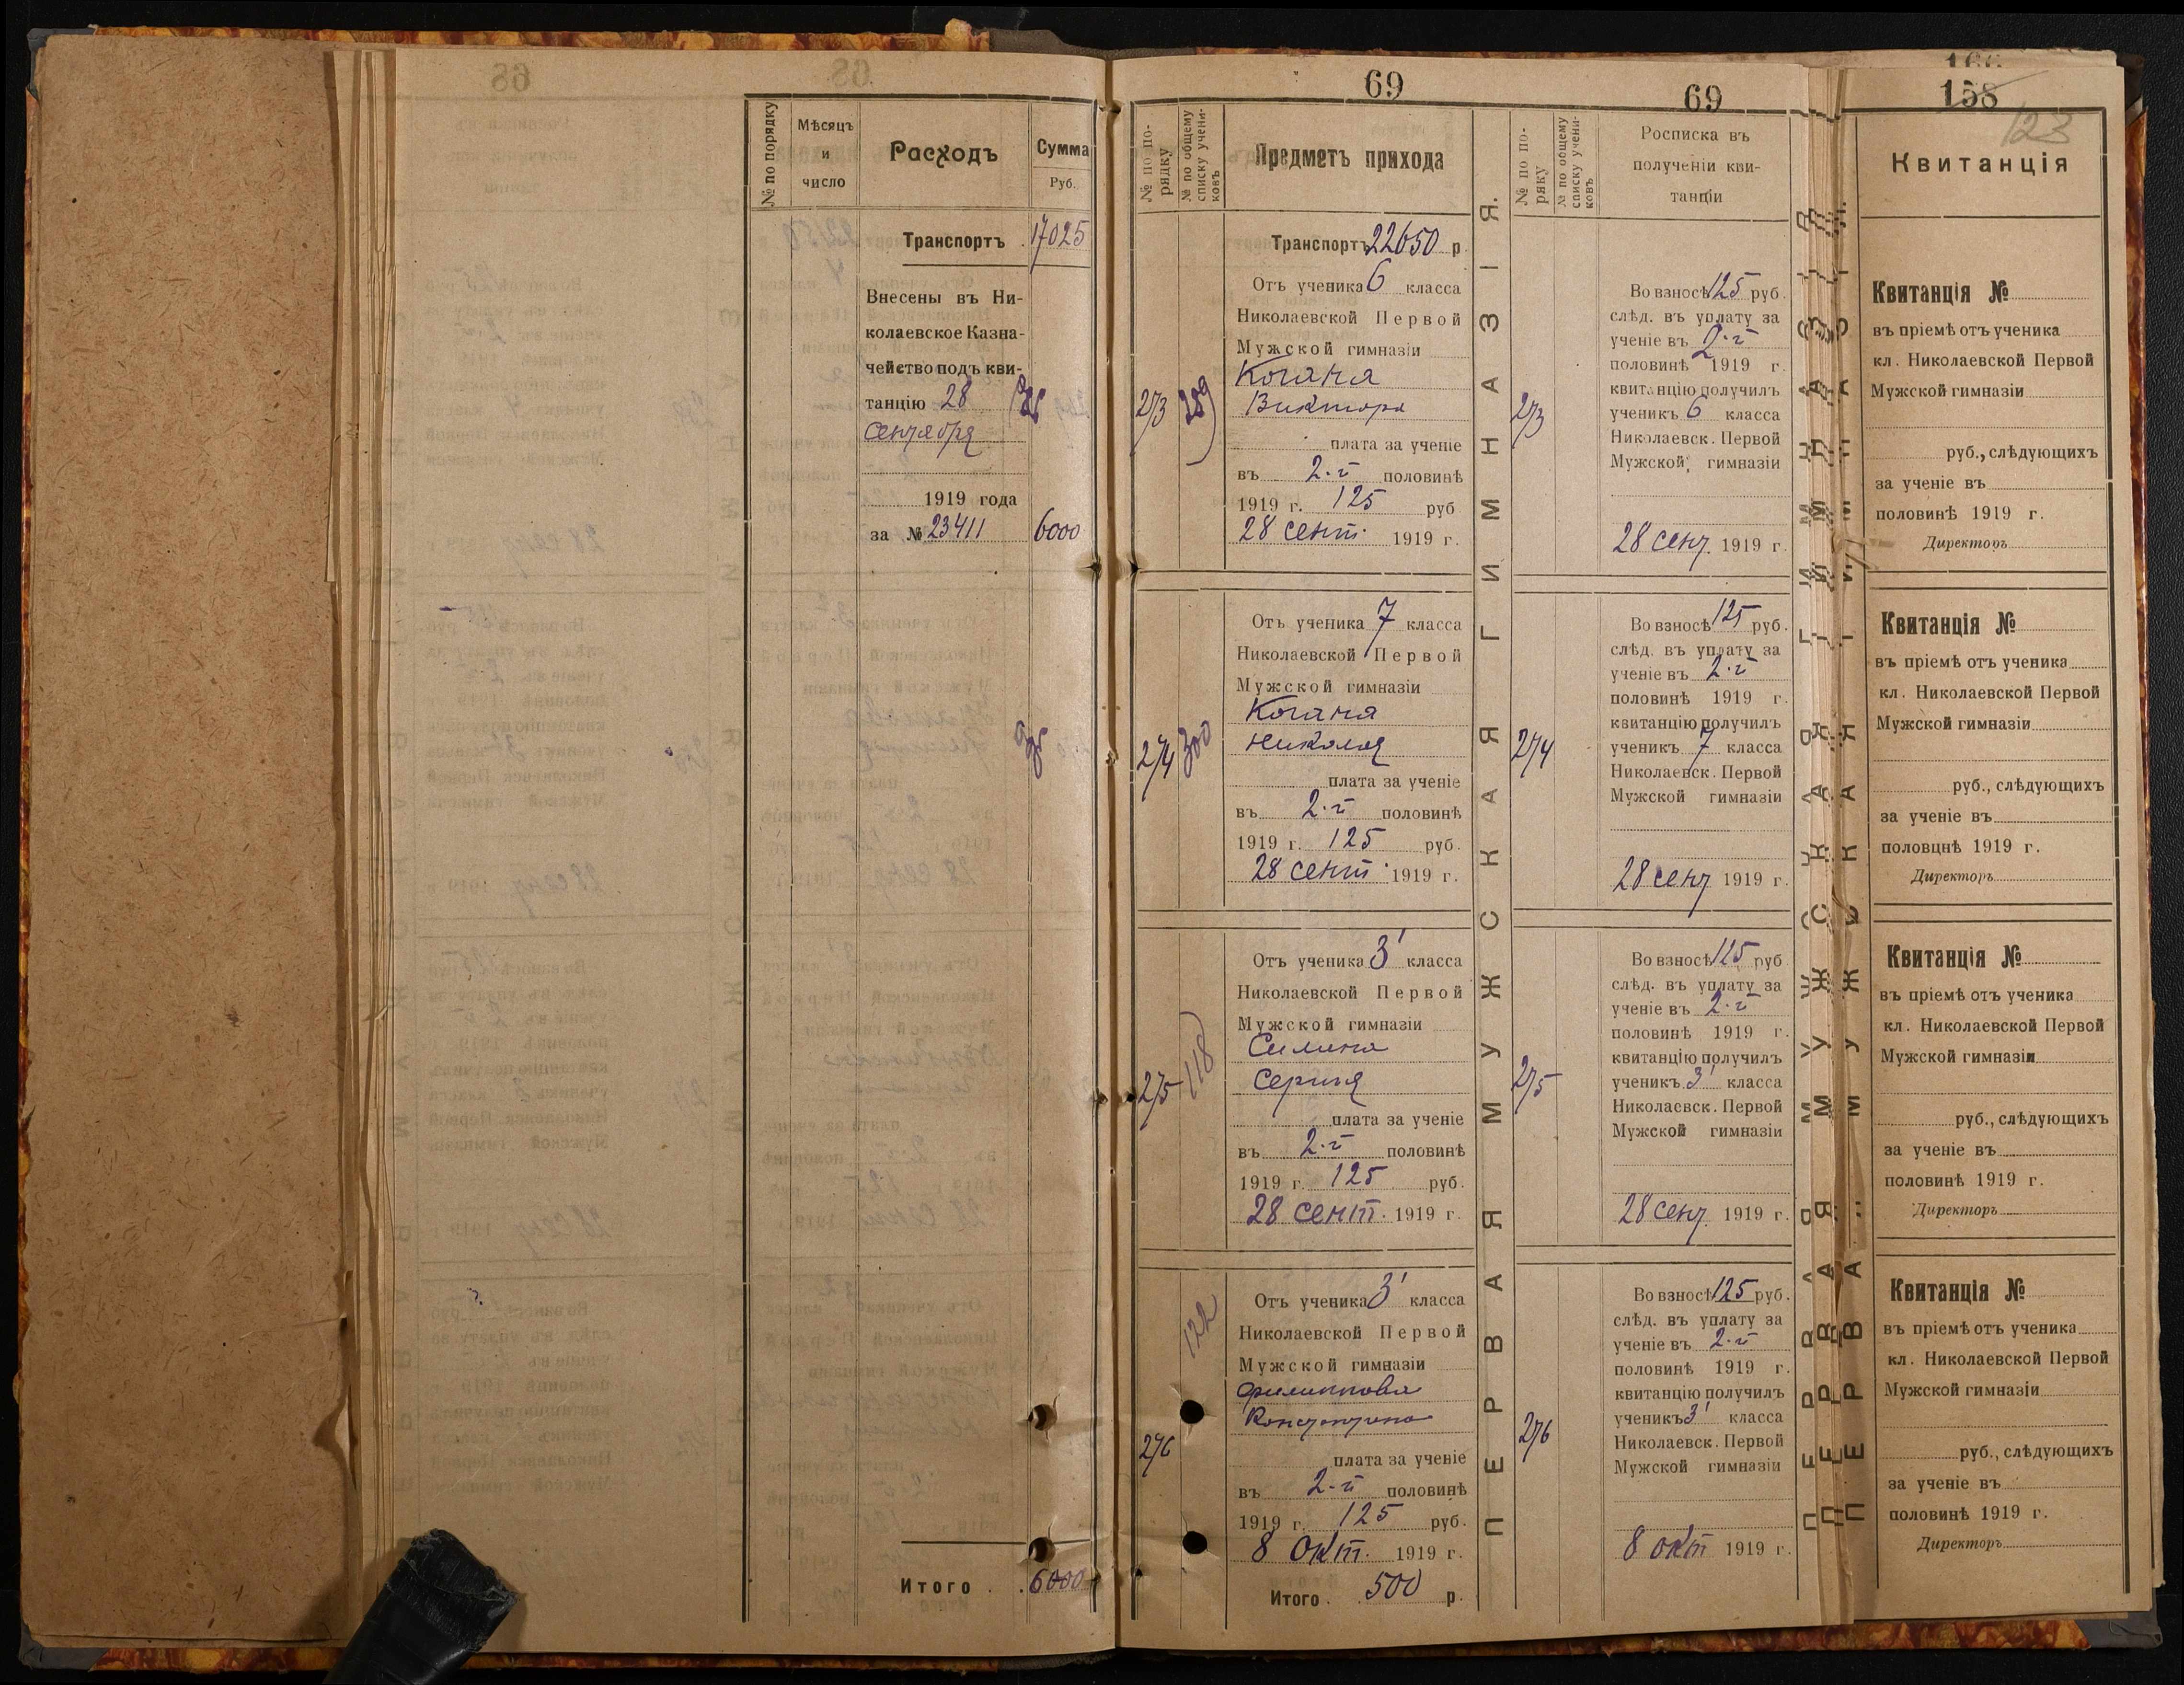 69
69
166
158
123
№ по порядку
Мѣсяцъ
и
число
Расходъ
Сумма
Руб.
Транспортъ . 17025
Внесены въ Ни-
колаевское Казна-
чейство подъ кви-
танцію 28
сентября
1919 года
за № 23411 6000
Итого . . 6000
№ по по-
рядку
№ по общему
списку учени-
ковъ
Предметъ прихода
Транспортъ 22650 р
273
289
Отъ ученика 6 класса
Николаевской Первой
Мужской гимназіи
Когана
Виктора
плата за ученіе
въ 2-й половинѣ
1919 г. 125 руб
28 сент. 1919 г.
274
300
Отъ ученика 7 класса
Николаевской Первой
Мужской гимназіи
Когана
Николая
плата за ученіе
въ 2-й половинѣ
1919 г. 125 руб.
28 сент. 1919 г.
275
118
Отъ ученика 3' класса
Николаевской Первой
Мужской гимназіи
Силина
Сергѣя
плата за ученіе
въ 2-й половинѣ
1919 г. 125 руб.
28 сент. 1919 г.
276
122
Отъ ученика 3' класса
Николаевской Первой
Мужской гимназіи
Филиппова
Константина
плата за ученіе
въ 2-й половинѣ
1919 г. 125 руб.
8 окт. 1919 г.
Итого . 500 р.
ПЕРВАЯ МУЖСКАЯ ГИМНАЗІЯ.
№ по по-
ряку
№ по общему
списку учени-
ковъ
Росписка въ
полученіи кви-
танціи
273
Во взносѣ 125 руб.
слѣд. въ уплату за
ученіе въ 2-й
половинѣ 1919 г.
квитанцію получилъ
ученикъ 6 класса
Николаевск. Первой
Мужской гимназіи
28 сент. 1919 г.
274
Во взносѣ 125 руб.
слѣд. въ уплату за
ученіе въ 2-й
половинѣ 1919 г.
квитанцію получилъ
ученикъ 7 класса
Николаевск. Первой
Мужской гимназіи
28 сент 1919 г.
275
Во взносѣ 125 руб
слѣд. въ уплату за
ученіе въ 2-й
половинѣ 1919 г.
квитанцію получилъ
ученикъ 3' класса
Николаевск. Первой
Мужской гимназіи
28 сент. 1919 г.
276
Во взносѣ 125 руб.
слѣд. въ уплату за
ученіе въ 2-й
половинѣ 1919 г.
квитанцію получилъ
ученикъ 3' класса
Николаевск. Первой
Мужской гимназіи
8 окт 1919 г.
Квитанція
Квитанція №
въ пріемѣ отъ ученика
кл. Николаевской Первой
Мужской гимназіи
руб., слѣдующихъ
за ученіе въ
половинѣ 1919 г.
Директоръ
Квитанція №
въ пріемѣ отъ ученика
кл. Николаевской Первой
Мужской гимназіи
руб., слѣдующихъ
за ученіе въ
половцнѣ 1919 г.
Директоръ
Квитанція №
въ пріемѣ отъ ученика
кл. Николаевской Первой
Мужской гимназіи
руб., слѣдующихъ
за ученіе въ
половинѣ 1919 г.
Директоръ
Квитанція №
въ пріемѣ отъ ученика
кл. Николаевской Первой
Мужской гимназіи
руб., слѣдующихъ
за ученіе въ
половинѣ 1919 г.
Директоръ